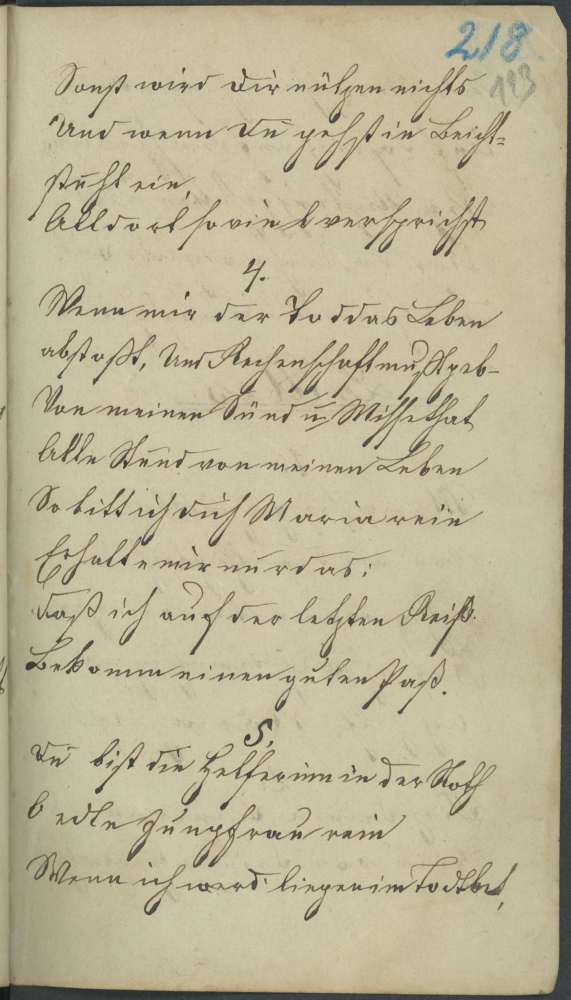 218
123
Sonst wird dir nützen nichts
Und wenn du gehst in Beicht=
stuhl ein,
Alldort so viel versprichst
4.
Wenn mir der Tod das Leben
abstoßt, Und Rechenschaft muß geb-
Von meinen Sünd u Missethat
Alle Stund von meinen Leben
So bitt ich dich Maria rein
Erhalte mir nur das:
daß ich auf der letzten Reiß
Bekomm einen guten Paß.
5.
Du bist die Helferinn in der Noth
O edle Jungfrau rein
Wenn ich werd liegen im Todtbet,